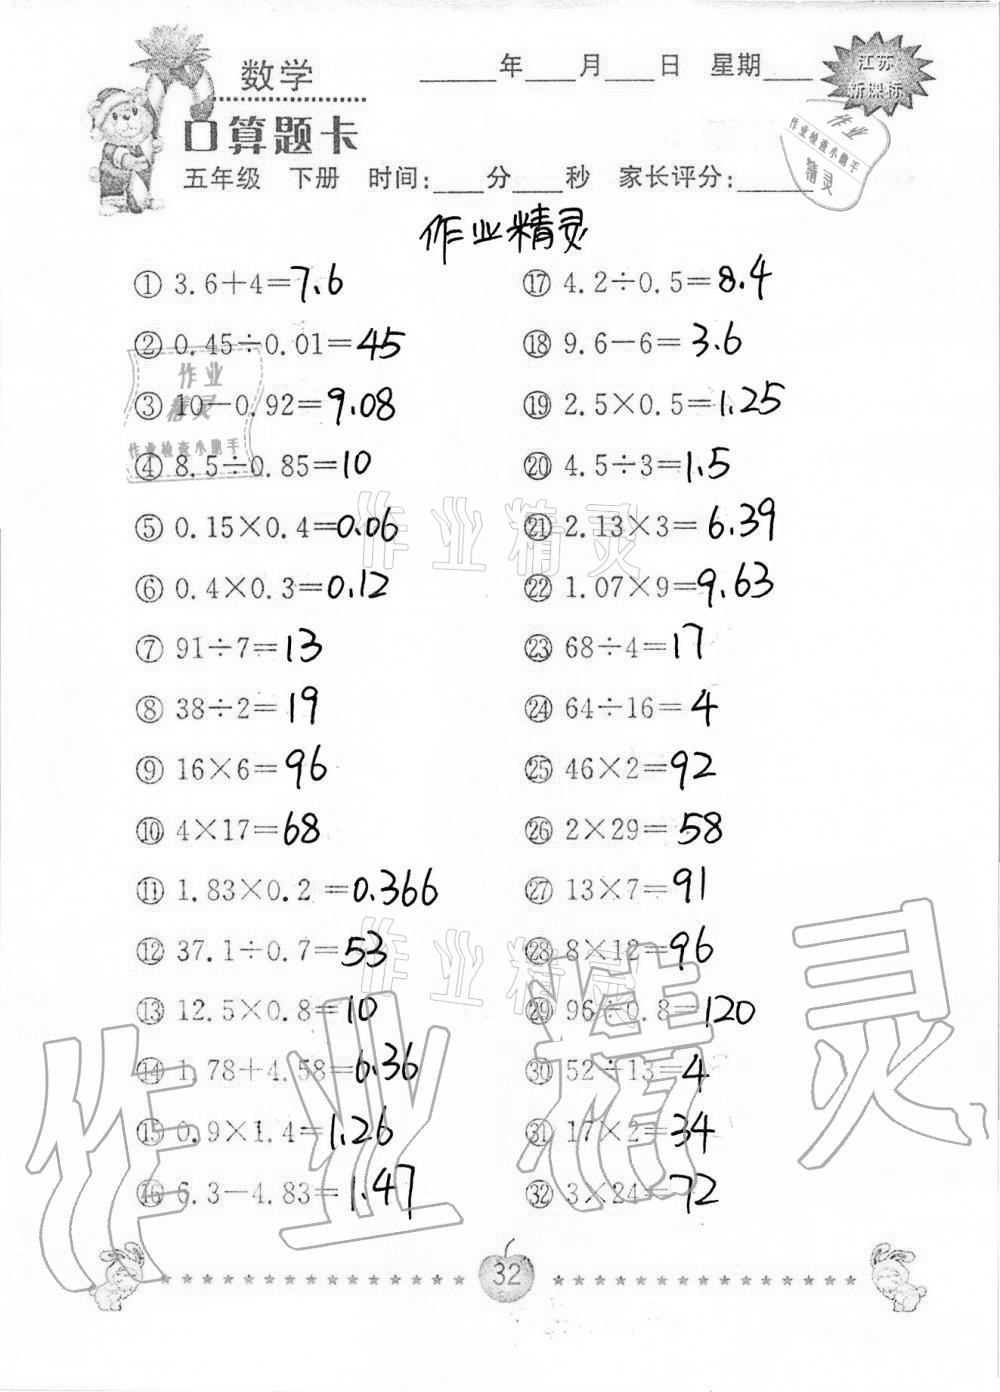 数学
____年____月____日 星期____
江苏
新课标
口算题卡
五年级 下册 时间:____分____秒 家长评分:______
作业
作业检查小助手
精灵
作业精灵
① 3.6+4=7.6
② 0.45÷0.01=45
③ 10-0.92=9.08
④ 8.5÷0.85=10
⑤ 0.15×0.4=0.06
⑥ 0.4×0.3=0.12
⑦ 91÷7=13
⑧ 38÷2=19
⑨ 16×6=96
⑩ 4×17=68
⑪ 1.83×0.2=0.366
⑫ 37.1÷0.7=53
⑬ 12.5×0.8=10
⑭ 1.78+4.58=6.36
⑮ 0.9×1.4=1.26
⑯ 6.3-4.83=1.47
⑰ 4.2÷0.5=8.4
⑱ 9.6-6=3.6
⑲ 2.5×0.5=1.25
⑳ 4.5÷3=1.5
㉑ 2.13×3=6.39
㉒ 1.07×9=9.63
㉓ 68÷4=17
㉔ 64÷16=4
㉕ 46×2=92
㉖ 2×29=58
㉗ 13×7=91
㉘ 8×12=96
㉙ 96÷0.8=120
㉚ 52÷13=4
㉛ 17×2=34
㉜ 3×24=72
作业
精灵
作业检查小助手
作业精灵
作业精灵
作业精灵
32